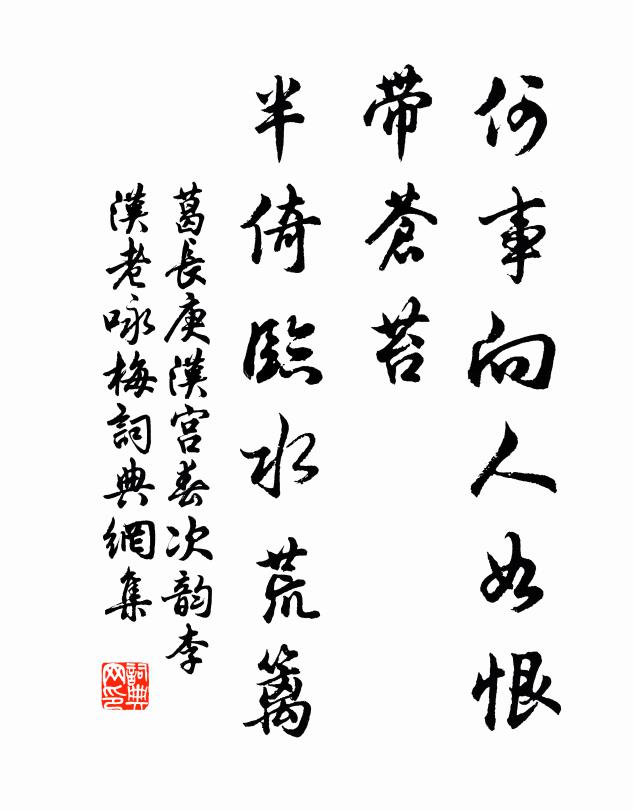 何事向人如恨
帶蒼苔
半倚臨水荒籬
葛長庚漢宮春次韵李
漢老咏梅詞典網集
詞典网印